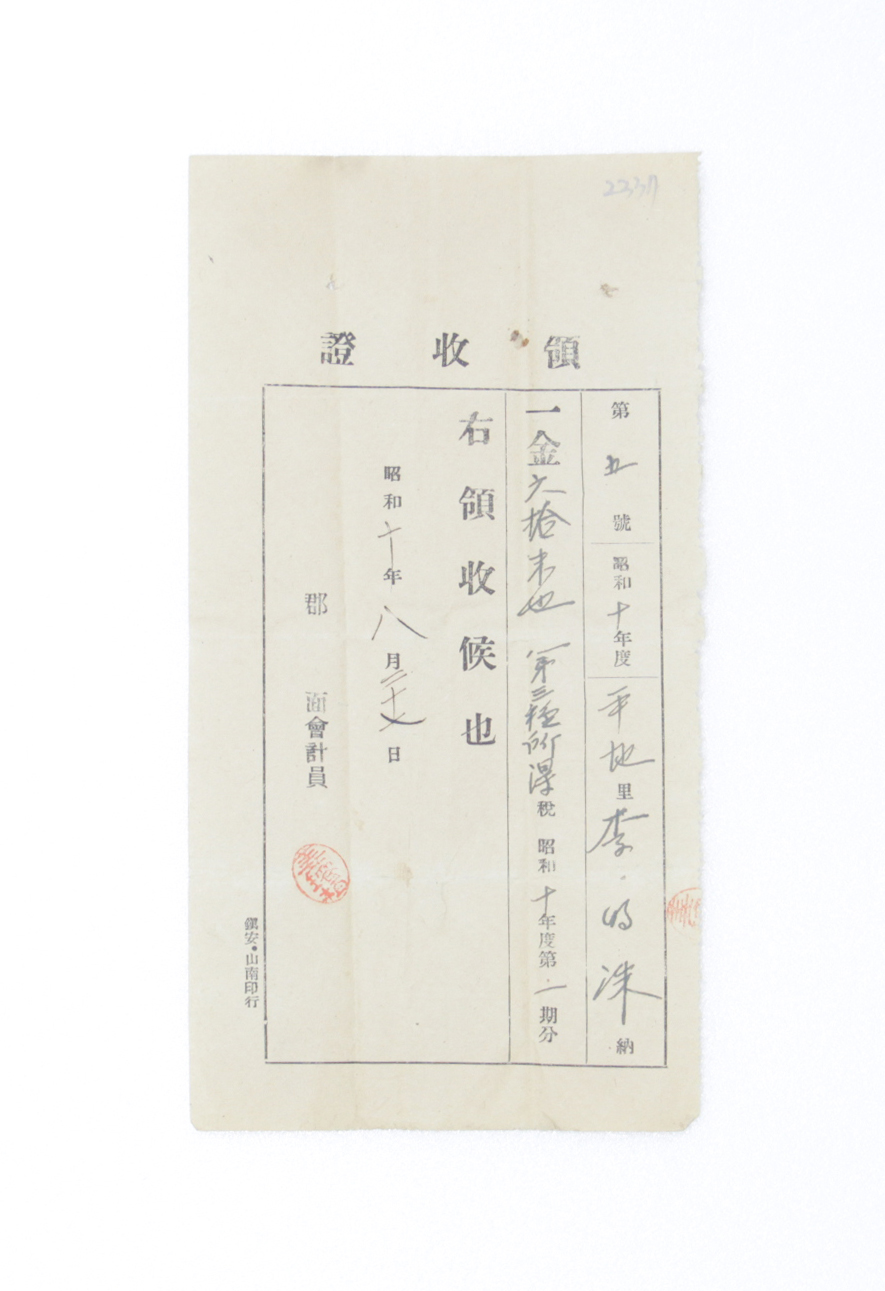 領收證
第五號 昭和十年度 平地里 李 洙 納
一金六拾 也 第三種所得稅 昭和十年度第 期分
右領收候也
昭和十年八月二十七日
郡 面會計員
安・山南印行